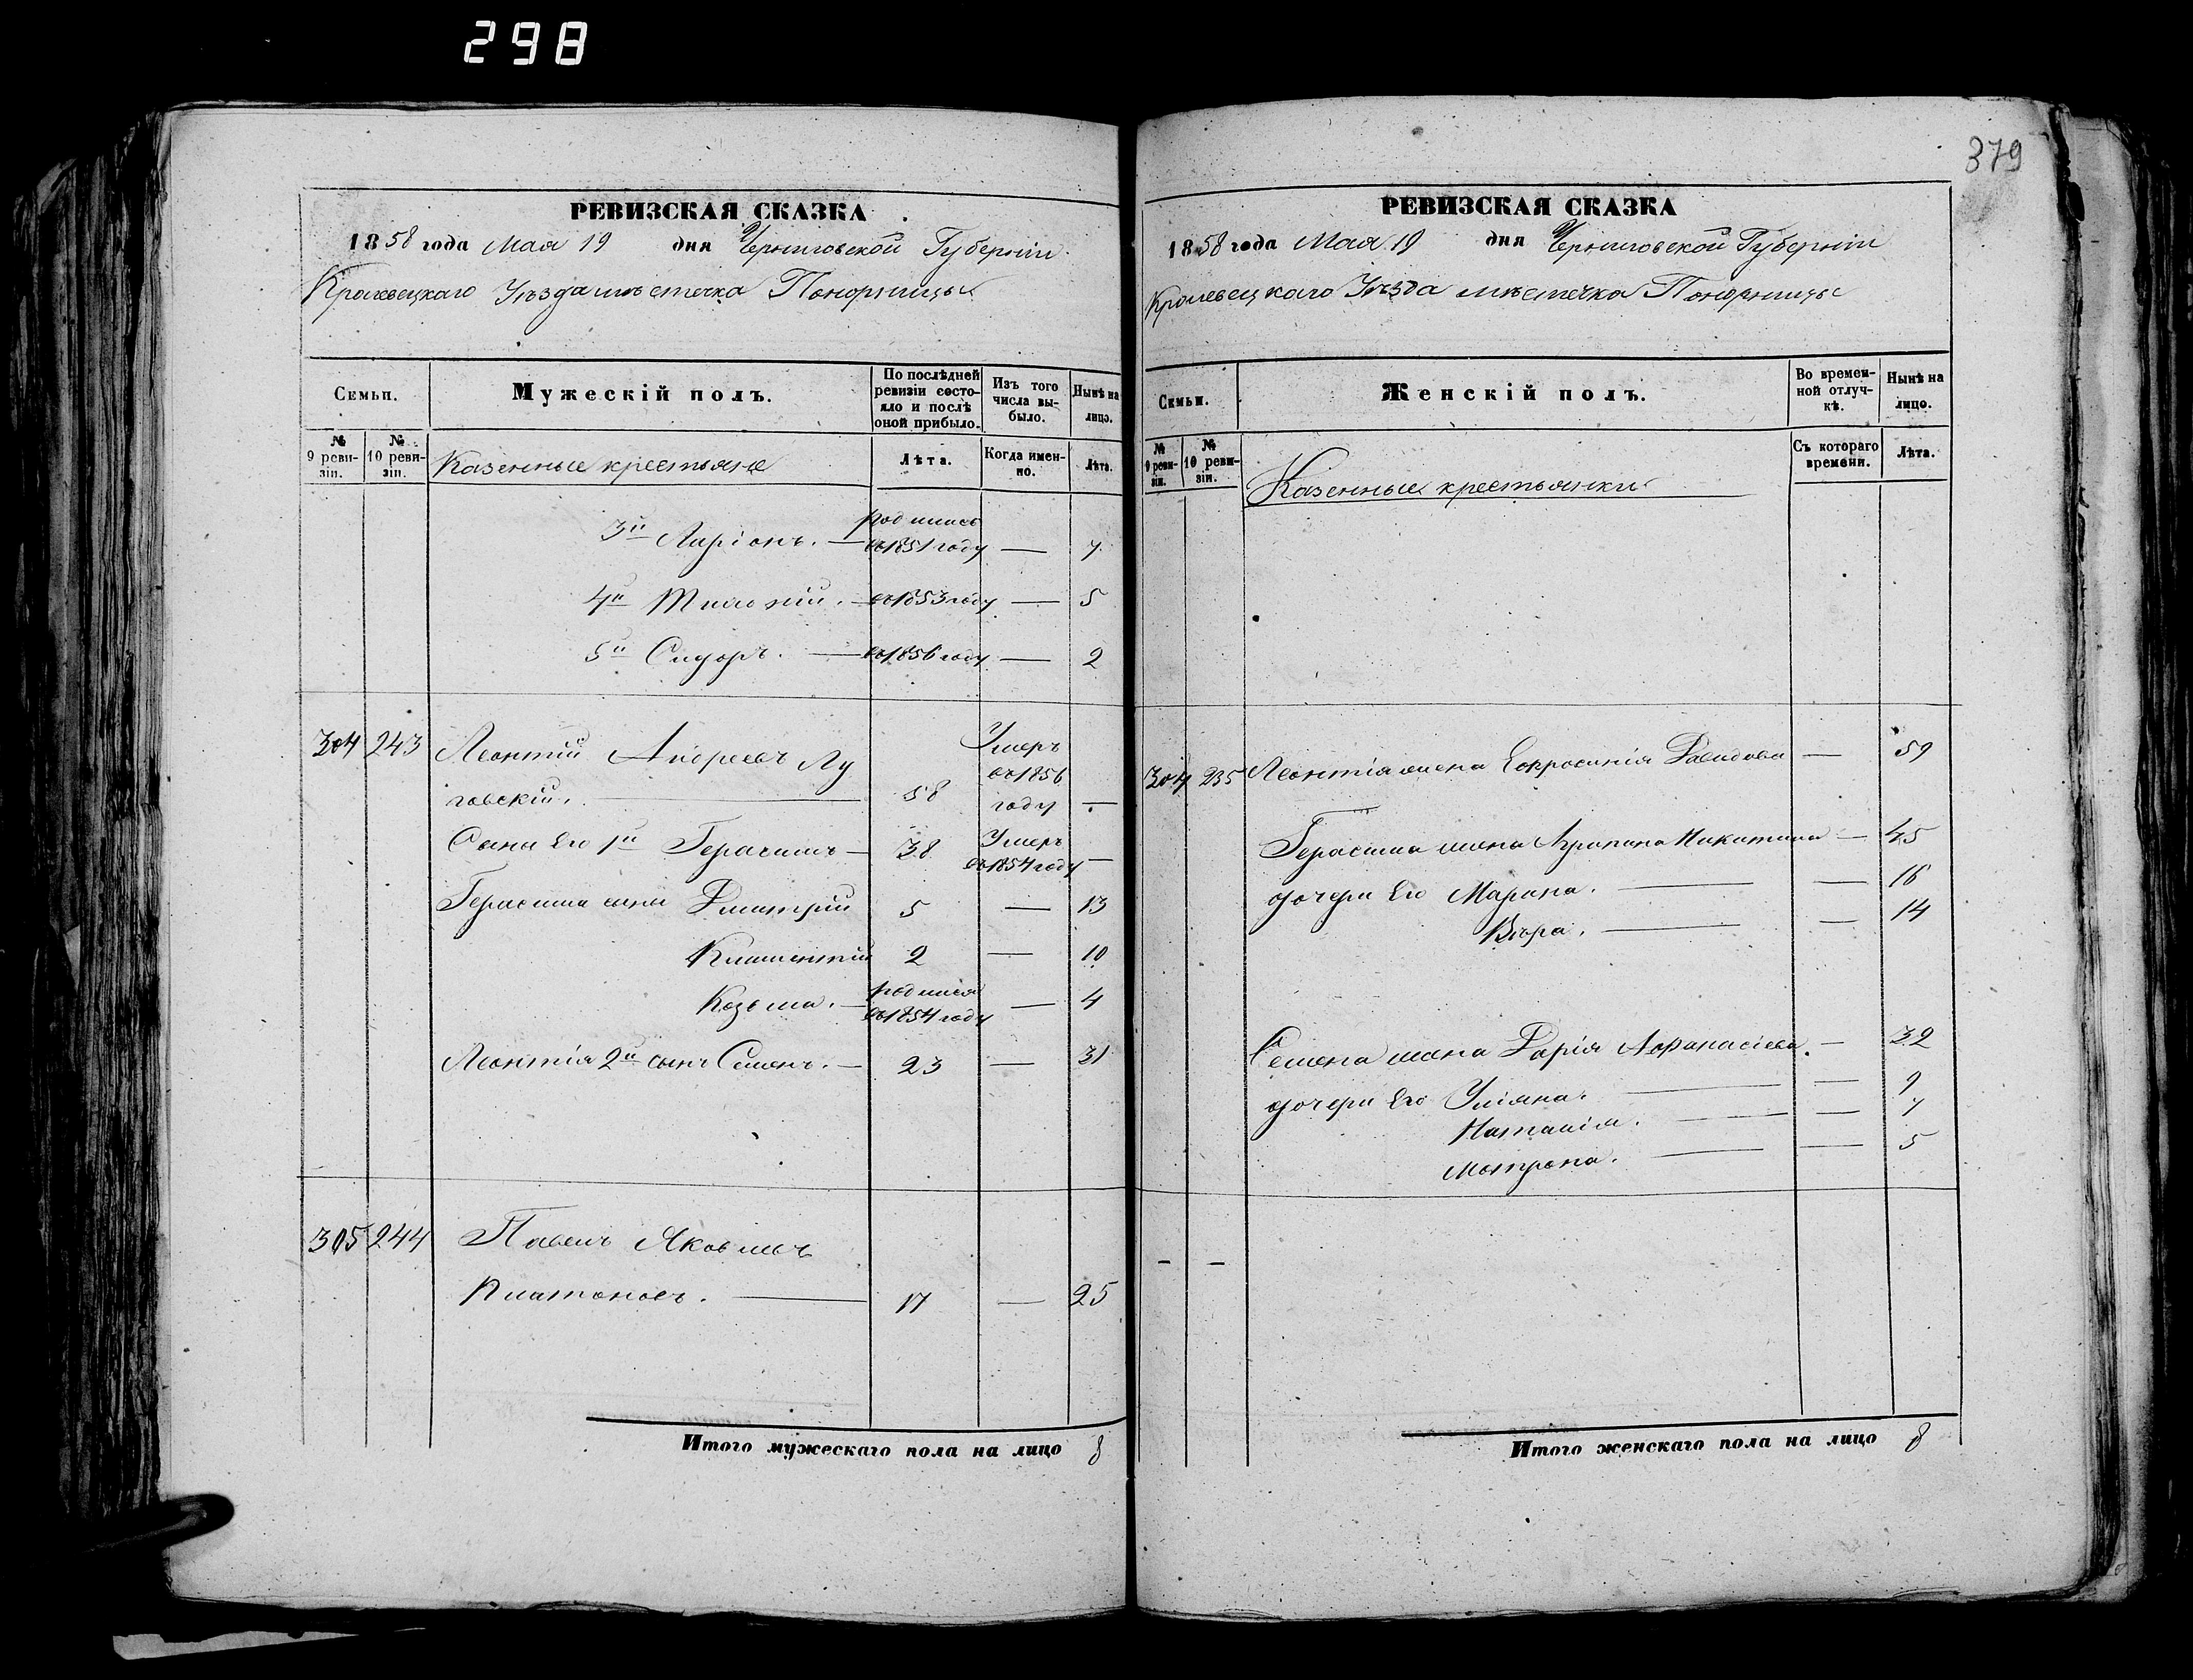 298
379
РЕВИЗСКАЯ СКАЗКА
1858 года Мая 19 дня Черниговской Губерніи
Кролевецкаго Уѣзда мѣстечка Понорницы
Семьи.
Мужескій полъ.
По послѣдней ревизіи состояло и послѣ оной прибыло.
Изъ того числа выбыло.
Нынѣ на лицо.
№ 9 ревизіи.
№ 10 ревизіи.
Казенные крестьяне
Лѣта.
Когда именно.
Лѣта.
3й Ларіонъ. — родился въ 1851 году — 7
4й — въ 1853 году — 5
5й Сидоръ. — въ 1856 году — 2
304 243 Леонтій Андреевъ Лу
говскій. — 58 Умеръ въ 1856 году —
Сыны Его 1й Герасимъ — 38 Умеръ въ 1854 году —
Герасима сыны Дмитрій 5 — 13
Климентій 2 — 10
Козьма. — родился въ 1854 году — 4
Леонтія 2й сынъ Семенъ. — 23 — 31
305 244 Павелъ Яковлевъ
Платоновъ. — 17 — 25
Итого мужескаго пола на лицо 8
РЕВИЗСКАЯ СКАЗКА
1858 года Мая 19 дня Черниговской Губерніи
Кролевецкаго Уѣзда мѣстечка Понорницы
Семьи.
Женскій полъ.
Во временной отлучкѣ.
Нынѣ на лицо.
№ 9 ревизіи.
№ 10 ревизіи.
Казенные крестьянки
Съ котораго времени.
Лѣта.
304 235 Леонтія жена Евфросинія Давидова — 59
Герасима жена Агрипина Никитина — 45
дочери Его Марина. — — 16
Вѣра. — — 14
Семена жена Дарія Афанасіева. — 32
дочери Его Уліяна. — — 9
Наталія. — — 7
Мотрона. — — 5
— —
Итого женскаго пола на лицо 8